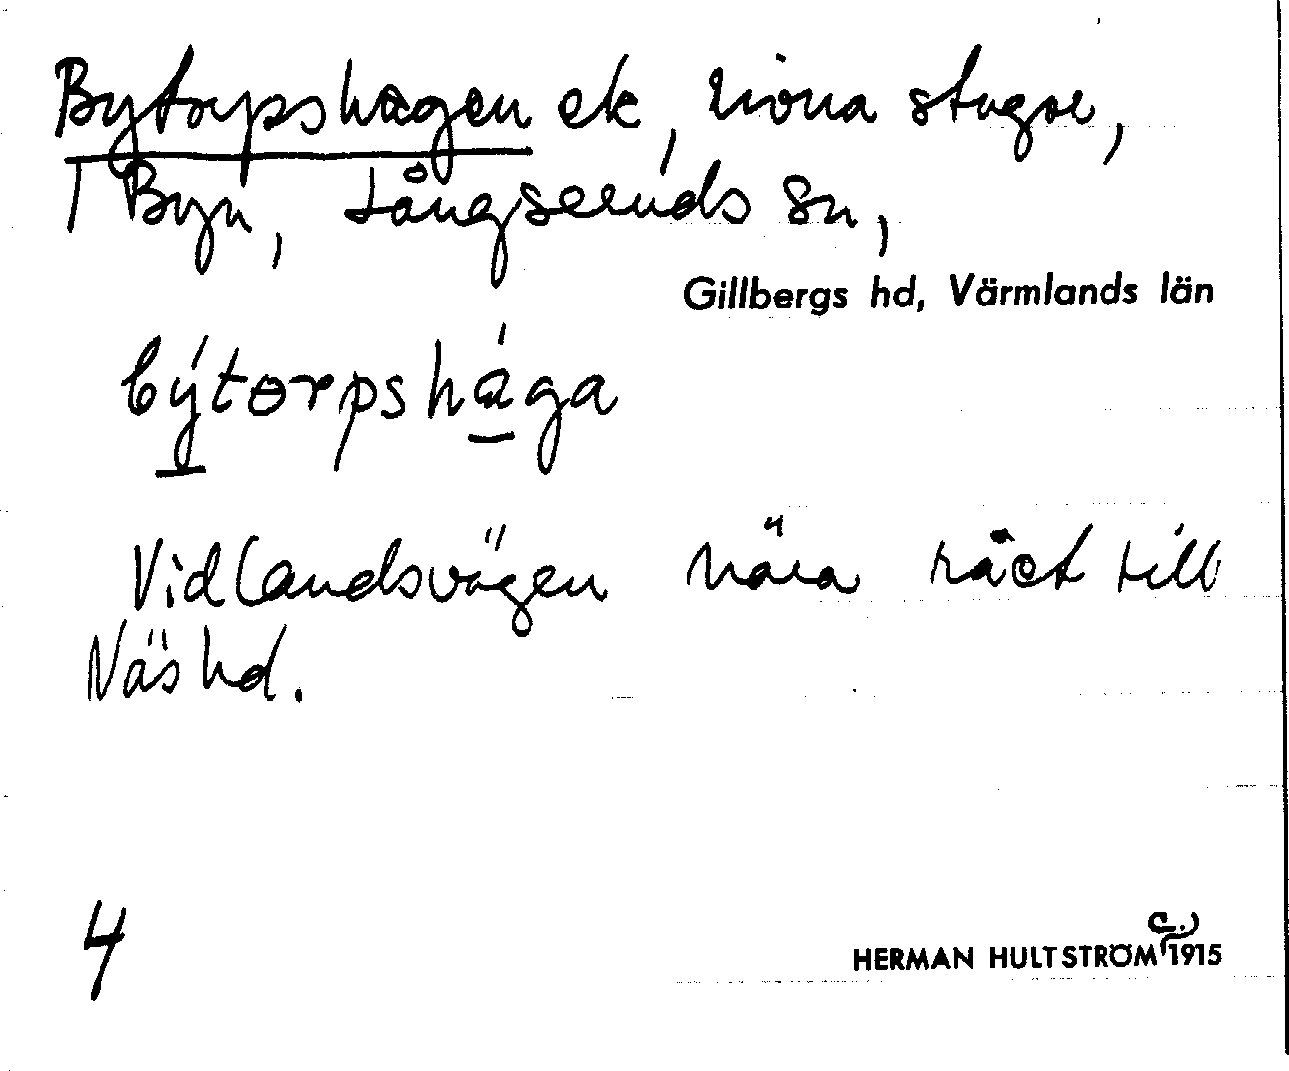 Bytorpshagen ek, rivna stugor,
T Byn, Långseruds sn,
Gillbergs hd, Värmlands län
býtorpshága
Vid landsvägen nära rået till
Näs hd.
4
HERMAN HULTSTRÖM (c.) 1915